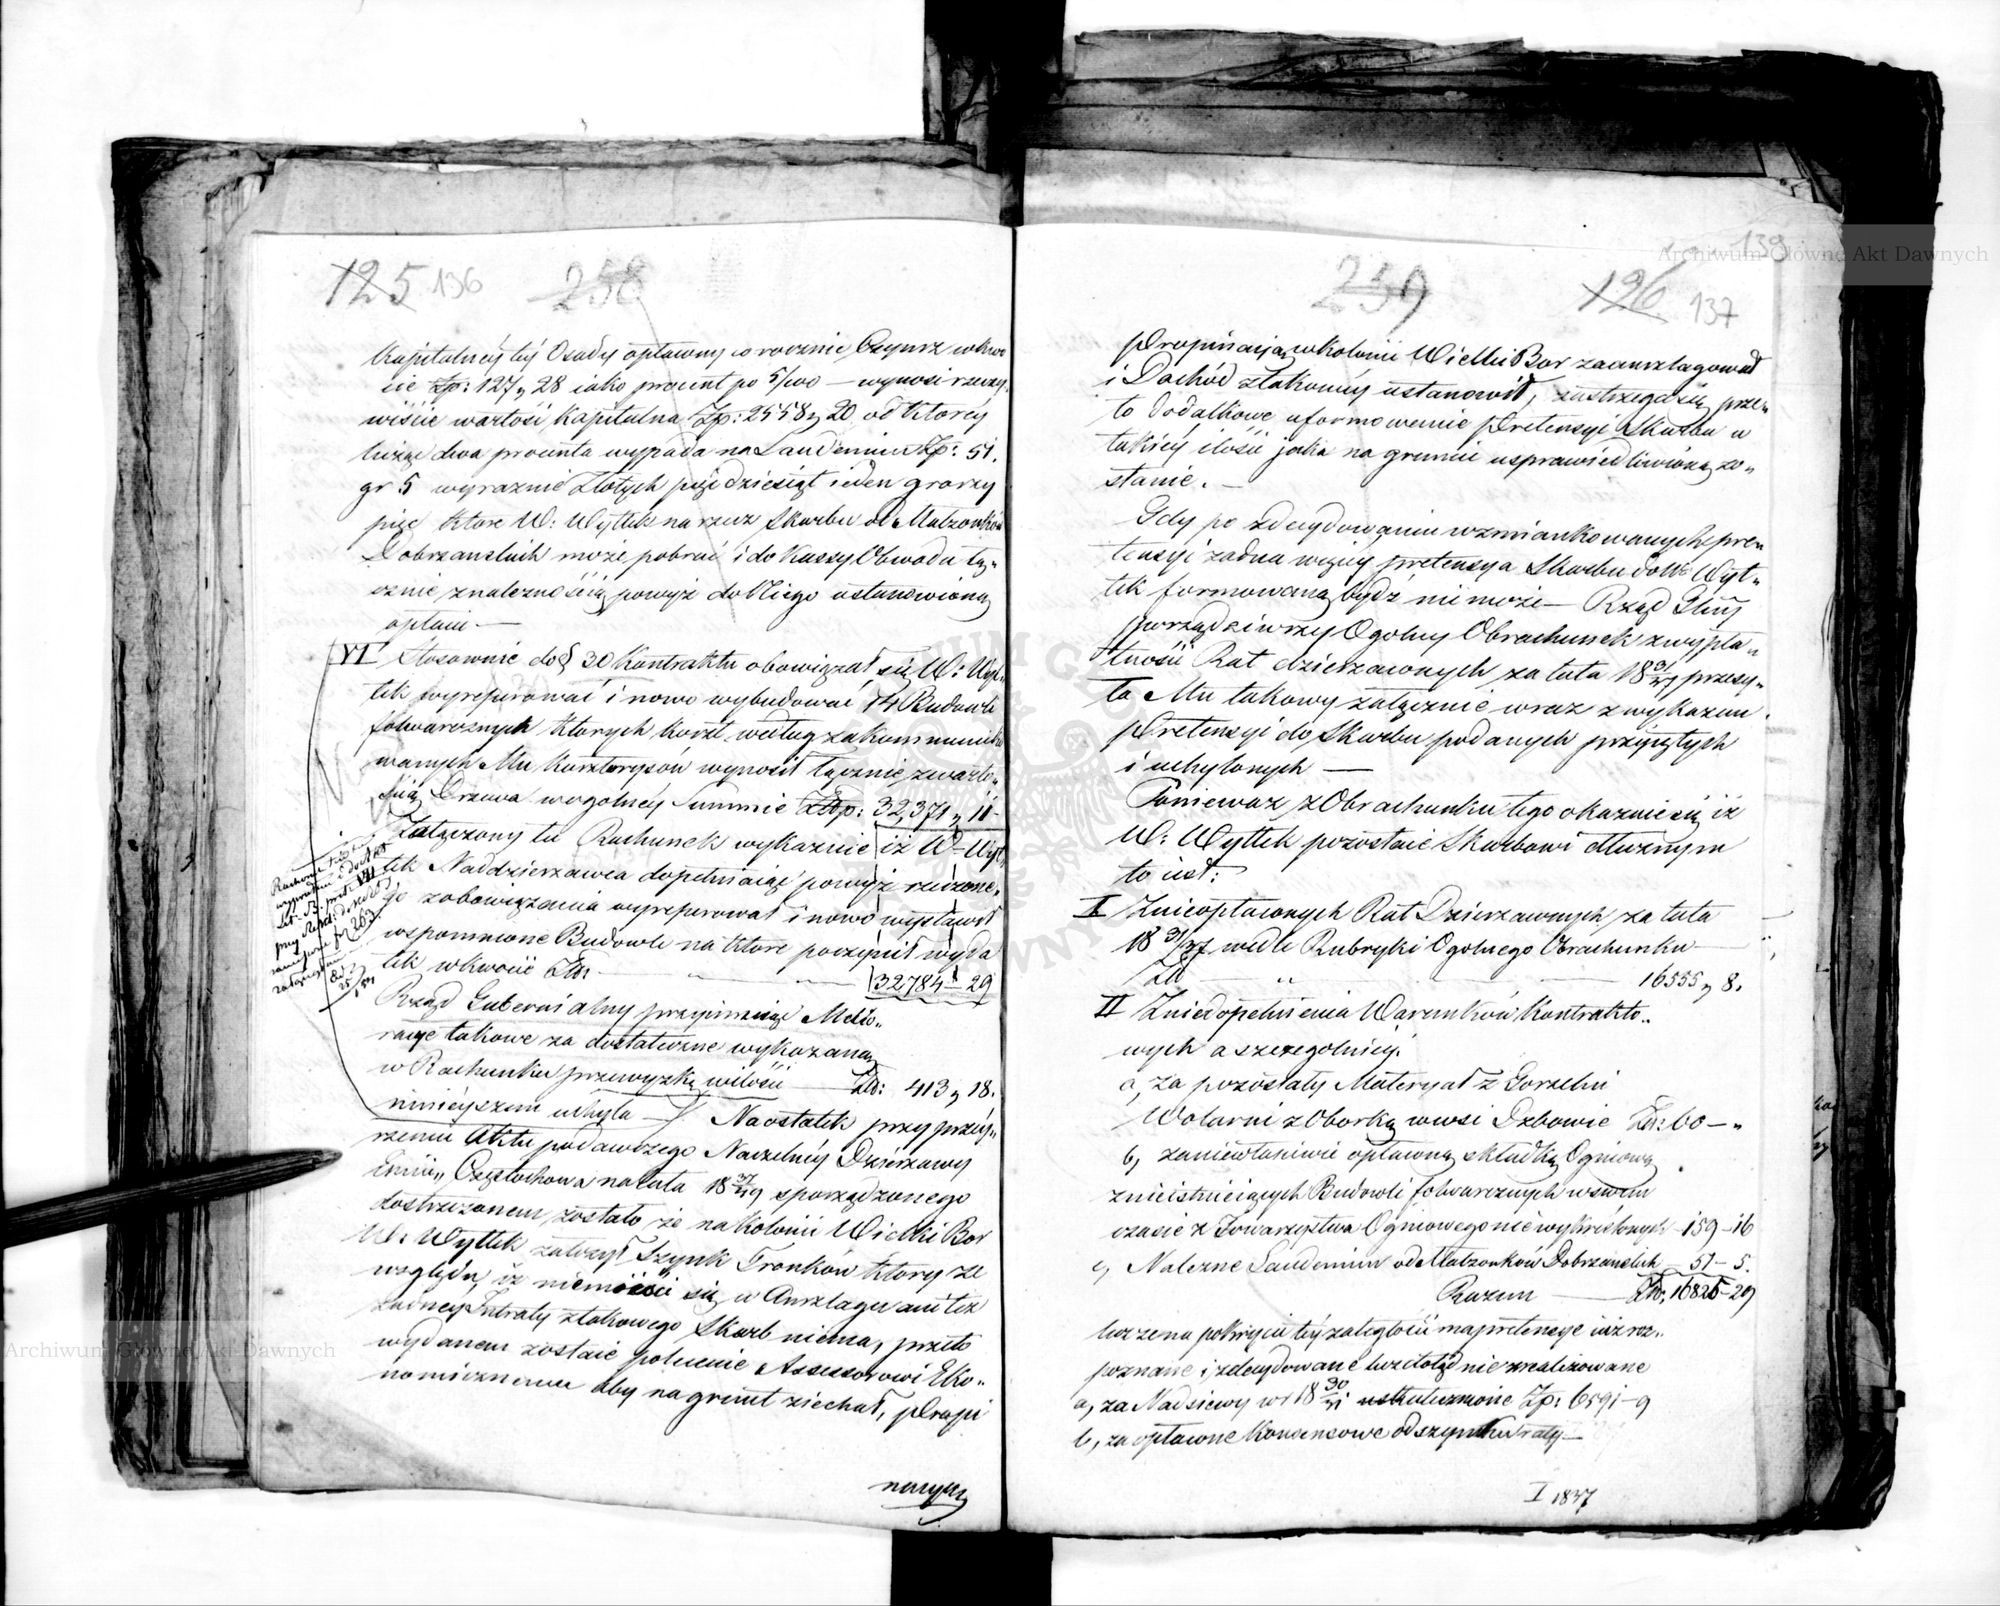 125 136 258
Kapitalnéy téy Osady opłacony corocznie Czynsz w kwo
cie Zp: 127 g 28 iako procent po 5/100 — wynosi rzeczy„
wiście wartość kapitalna Zp: 2558 g 20 od którey
licząc dwa procenta wypada na Laudemium Zp: 51.
gr 5 wyraznie Złotych pięćdziesiąt ieden groszy
pięć które W: Wyttek na rzecz Skarbu od Małzonków
Dobrzanskich może pobrać i do Kassy Obwodu łą„
cznie z należnością powyż dla Niego ustanowioną
opłaci —
VI Stosownie do § 30 Kontraktu obowiązał się W: Wyt„
tek wyreperować i nowo wybudować 14 Budowli
folwarcznych których koszt według zakommuniko
wanych Mu Kosztorysów wynosił łącznie z warto„
ścią Drzewa w ogólnéy Summie Złp: 32,371 g 11 -
Załączony tu Rachunek wykaznie iż W— Wyt
tek Naddzierżawca dopełniaiąc powyż rzeczone„
go zobowiązania wyreperował i nowo wystawił
wspomnione Budowle na które poczynił wyda
tek w kwocie Złp: — „ — 32784 - 29
Rząd Gubernialny przyimuiąc Melio„
racye takowe za dostateczne wykazaną
w Rachunku przewyzkę w ilości — Złp: 413 g 18.
ninieyszem uchyla — Naostatek przy przéy„
rzeniu Aktu podawczego Naczelnéy Dzierżawy
Ekonii„ Częstochowa na lata 18 37/49 sporządzonego
dostrzeżonem zostało że na Kolonii Wielki Bor
W. Wyttek założył Szynk Tronków który ze
względu, iż niemieści się w Anszlagu ani też
żadney Intraty z takowego Skarb niema, przeto
wydanem zostaie polecenie Assessorowi Eko„
nomicznemu aby na grunt ziechał, Propi
nacyą
239 126 137 139
Propinacyą w kolonii Wielki Bor zaanszlagował
i Dochód z takowéy ustanowił, zastrzega się prze„
to dodatkowe uformowanie Pretensyi Skarbu w
takiéy ilości jaka na gruncie usprawiedliwioną zo„
stanie. —
Gdy po zdecydowaniu wzmiankowanych pre„
tensyi żadna więcéy pretensya Skarbu do W: Wyt„
tek formowaną bydź nie może — Rząd Glny
porządziwszy Ogólny Obrachunek z wypła„
tności Rat dzierzawnych za lata 18 31/37 przesy„
ła Mu takowy załącznie wraz z wykazem
Pretensyi do Skarbu podanych przyiętych
i uchylonych —
Ponieważ z Obrachunku tego okaznie się iż
W: Wyttek pozostaie Skarbowi dłużnym
to iest:
I Z nieopłaconych Rat Dzierzawnych za lata
18 31/37 wedle Rubryki Ogolnego Obrachunku —
Złp. — „ — 16555 g 8.
II Z niedopełnienia Warunków Kontrakto„
wych a szczególniéy:
a, za pozostały Materyał z Gorzelni
Wolarni z Oborką w wsi Dzbowie Złp: 60 — „
b, za niewłaściwie opłaconą składkę Ogniową
z nieistnieiących Budowli folwarcznych w swem
czasie z Towarzystwa Ogniowego nie wykréślonych — 159 — 16
c, Należne Laudemium od Małzonków Dobrzanskich — 51 — 5.
Razem — Złp. 16825 - 29
lecz zena pokrycie téy zaległości ma pretensye iuż roz„
poznane i zdecydowane lecz dotąd nie zrealizowane
a, za Nadsiewy w r 18 30/31 uskutecznione Zp: 6591 - 9
b, za opłacone Konsensowe od szynku raty —
I 1837
Archiwum Główne Akt Dawnych
Archiwum Główne Akt Dawnych